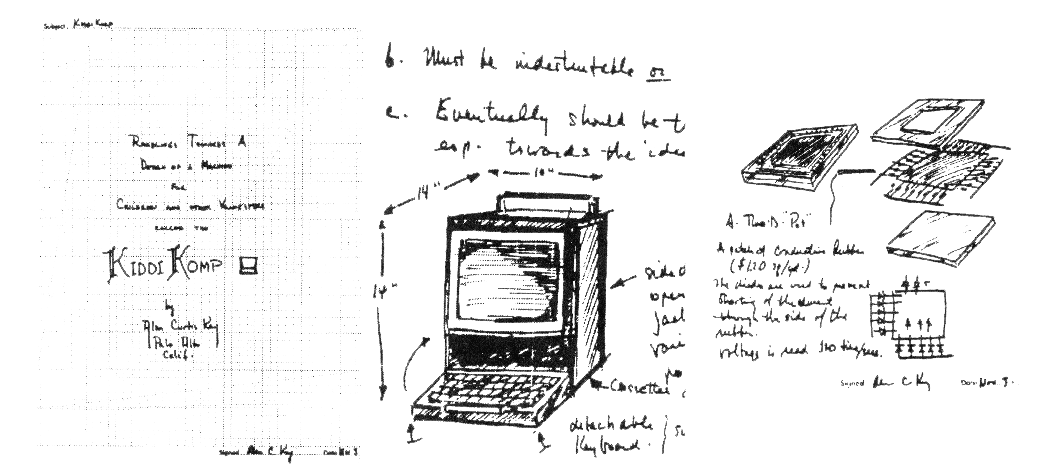 Subject: Kiddi Komp
Ramblings Towards A
Design of a Machine
for
Children and other
called the
KIDDI KOMP
by
Alan Curtis Kay
Palo Alto
Calif.
Signed Alan C. Kay Date Nov 3
b. Must be indestructable or
c. Eventually should be
esp. towards the idea
14"
10"
14"
side
open
Cassettes
detachable
Keyboard.
A Two D "Pot"
A patch of conductive Rubber
The diodes are used to prevent
shorting of the current
through the side of the
rubber.
Voltage is read
Signed Alan C Kay Date Nov 3.